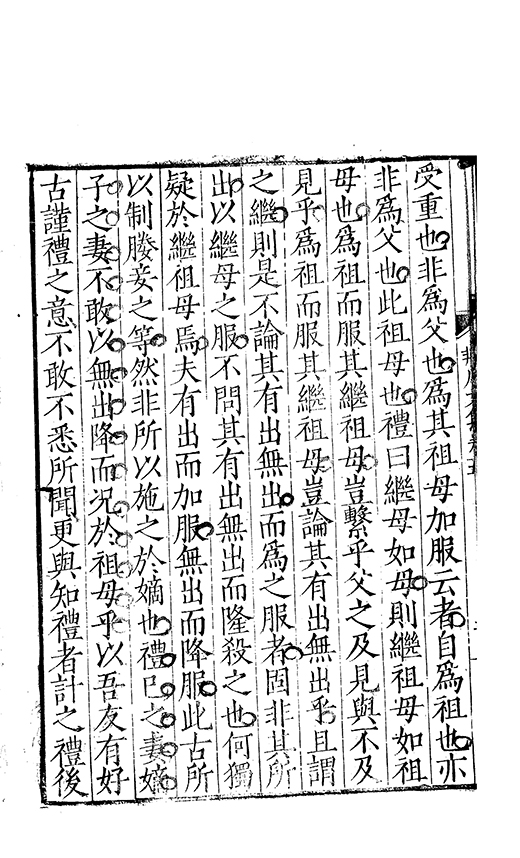 受重也非爲父也爲其祖母加服云者自爲祖也亦
非爲父也此祖母也禮曰繼母如母則繼祖母如祖
母也爲祖而服其繼祖母豈繫乎父之及見與不及
見乎爲祖而服其繼祖母豈論其有出無出乎且謂
之繼則是不論其有出無出而爲之服者固非其所
出以繼母之服不問其有出無出而隆殺之也何獨
疑於繼祖母焉夫有出而加服無出而降服此古所
以制媵妾之等然非所以施之於嫡也禮巳之妻嫡
子之妻不敢以無出降而况於祖母乎以吾友有好
古謹禮之意不敢不悉所聞更與知禮者計之禮後